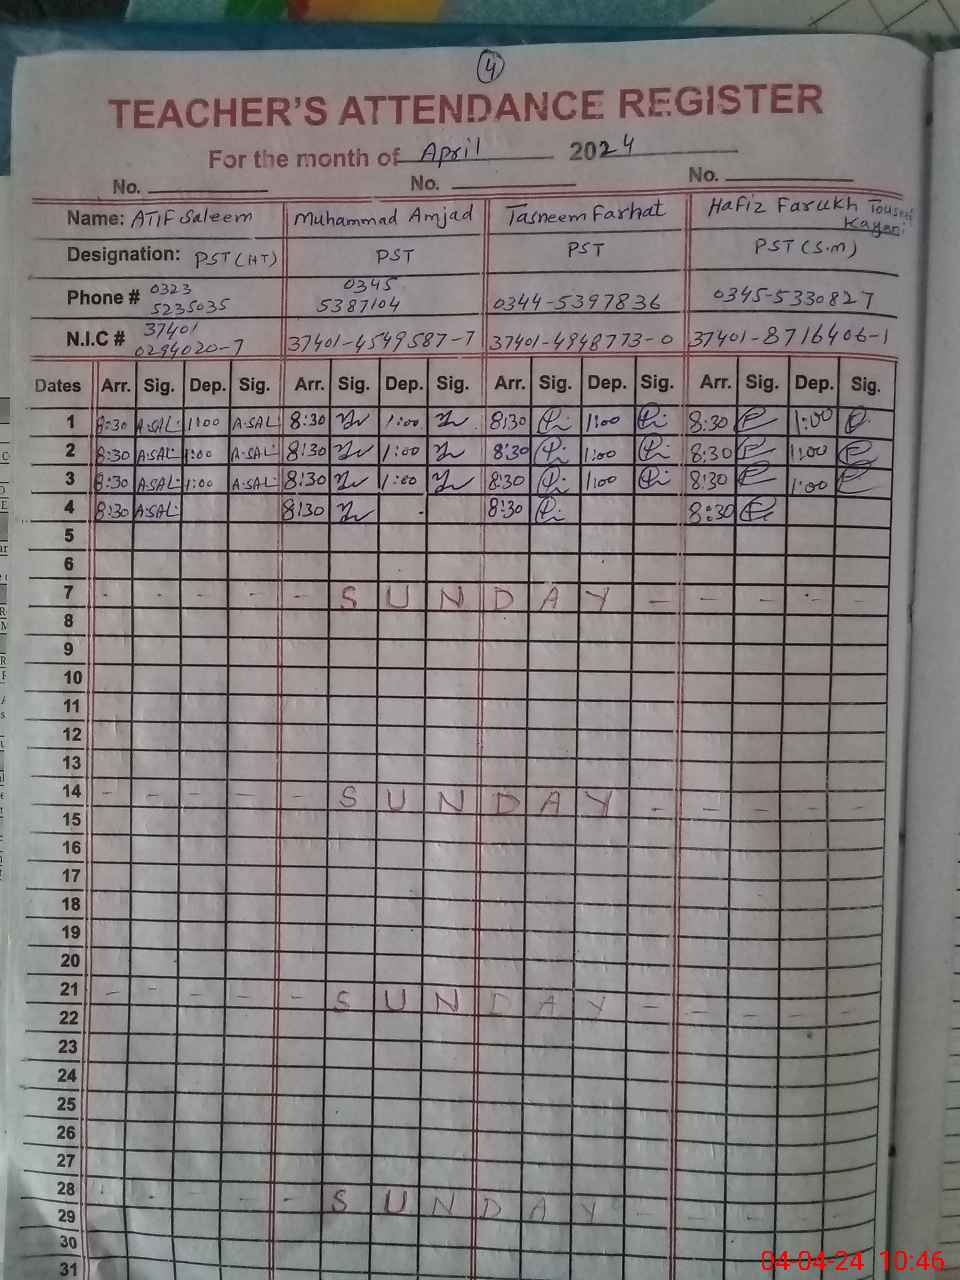 4
TEACHER'S ATTENDANCE REGISTER
For the month of April 2024
No. No. No.
Name: ATIF Saleem Muhammad Amjad Tasneem Farhat Hafiz Farukh Kayani
Designation: PST (HT) PST PST PST (S.M)
Phone # 0323 5235035 0345 5387104 0344-5397836 0345-5330827
N.I.C # 37401 0294020-7 37401-4549587-7 37401-4948773-0 37401-8716406-1
Dates Arr. Sig. Dep. Sig. Arr. Sig. Dep. Sig. Arr. Sig. Dep. Sig. Arr. Sig. Dep. Sig.
1 8:30 A.SAL: 1:00 A.SAL: 8:30 1:00 8:30 1:00 8:30 1:00
2 8:30 A.SAL: 1:00 A.SAL: 8:30 1:00 8:30 1:00 8:30 1:00
3 8:30 A.SAL: 1:00 A.SAL: 8:30 1:00 8:30 1:00 8:30 1:00
4 8:30 A.SAL: 8:30 8:30 8:30
5
6
7 - - - - - S U N D A Y - - - - -
8
9
10
11
12
13
14 - - - - - S U N D A Y - - - - -
15
16
17
18
19
20
21 - - - - - S U N D A Y - - - - -
22
23
24
25
26
27
28 - - - - - S U N D A Y - - - - -
29
30
31
04-04-24 10:46